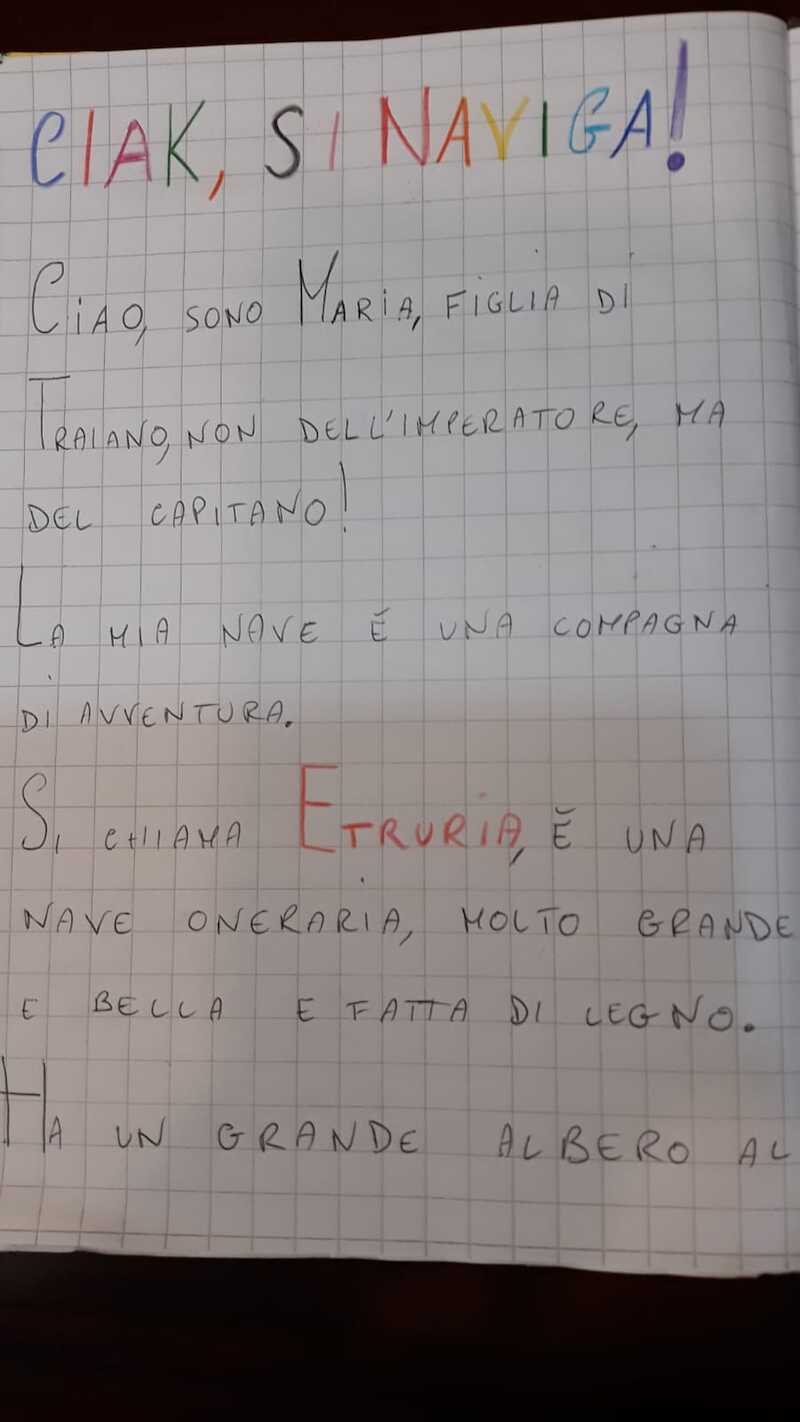 CIAK, SI NAVIGA!
CIAO, SONO MARIA, FIGLIA DI
TRAIANO, NON DELL'IMPERATORE, MA
DEL CAPITANO!
LA MIA NAVE È UNA COMPAGNA
DI AVVENTURA.
SI CHIAMA ETRURIA, È UNA
NAVE ONERARIA, MOLTO GRANDE
E BELLA E FATTA DI LEGNO.
HA UN GRANDE ALBERO AL